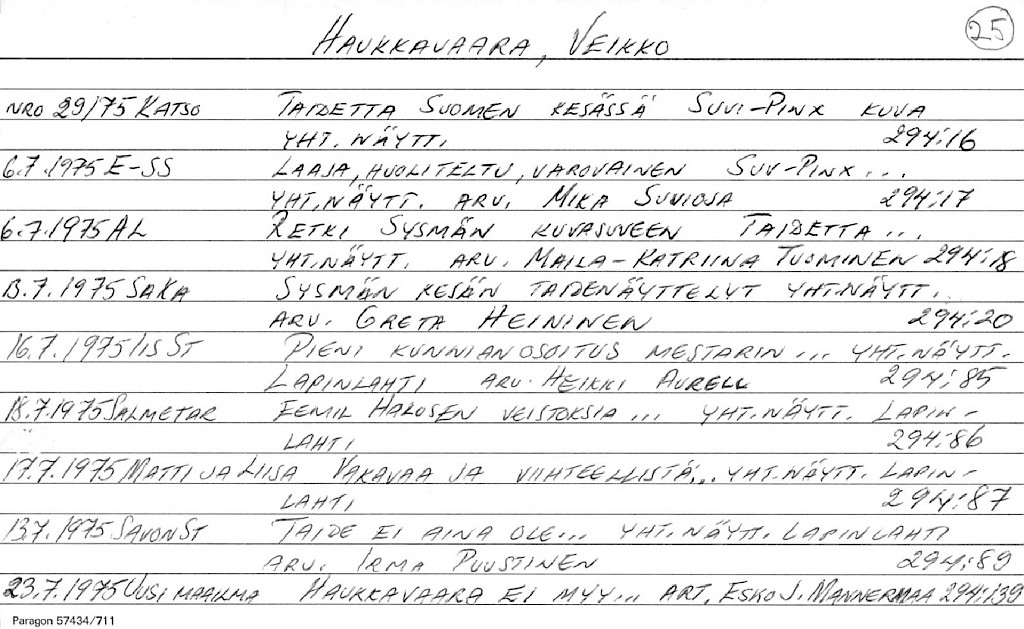 25
HAUKKAVAARA, VEIKKO
NRO 29/75 KATSO TAIDETTA SUOMEN KESÄSSÄ SUVI-PINX KUVA
YHT. NÄYTT. 294:16
6.7.1975 E-SS LAAJA, HUOLITELTU, VAROVAINEN SUV-PINX...
YHT.NÄYTT. ARV. MIKA SUVIOJA 294:17
6.7.1975 AL RETKI SYSMÄN KUVASUVEEN TAIDETTA...
YHT.NÄYTT. ARV. MAILA-KATRIINA TUOMINEN 294:18
13.7.1975 SAKA SYSMÄN KESÄN TAIDENÄYTTELYT YHT.NÄYTT.
ARV. GRETA HEININEN 294:20
16.7.1975 IIS ST PIENI KUNNIANOSOITUS MESTARIN... YHT.NÄYTT.
LAPINLAHTI ARV. HEIKKI AURELL 294:85
18.7.1975 SALMETAR EEMIL HALOSEN VEISTOKSIA... YHT.NÄYTT. LAPIN-
LAHTI 294:86
17.7.1975 MATTI JA LIISA VAKAVAA JA VIIHTEELLISTÄ... YHT.NÄYTT. LAPIN-
LAHTI 294:87
13.7.1975 SAVON ST TAIDE EI AINA OLE... YHT.NÄYTT. LAPINLAHTI
ARV. IRMA PUUSTINEN 294:89
23.7.1975 UUSI MAAILMA HAUKKAVAARA EI MYY... ART. ESKO J. MANNERMAA 294:139
Paragon 57434/711